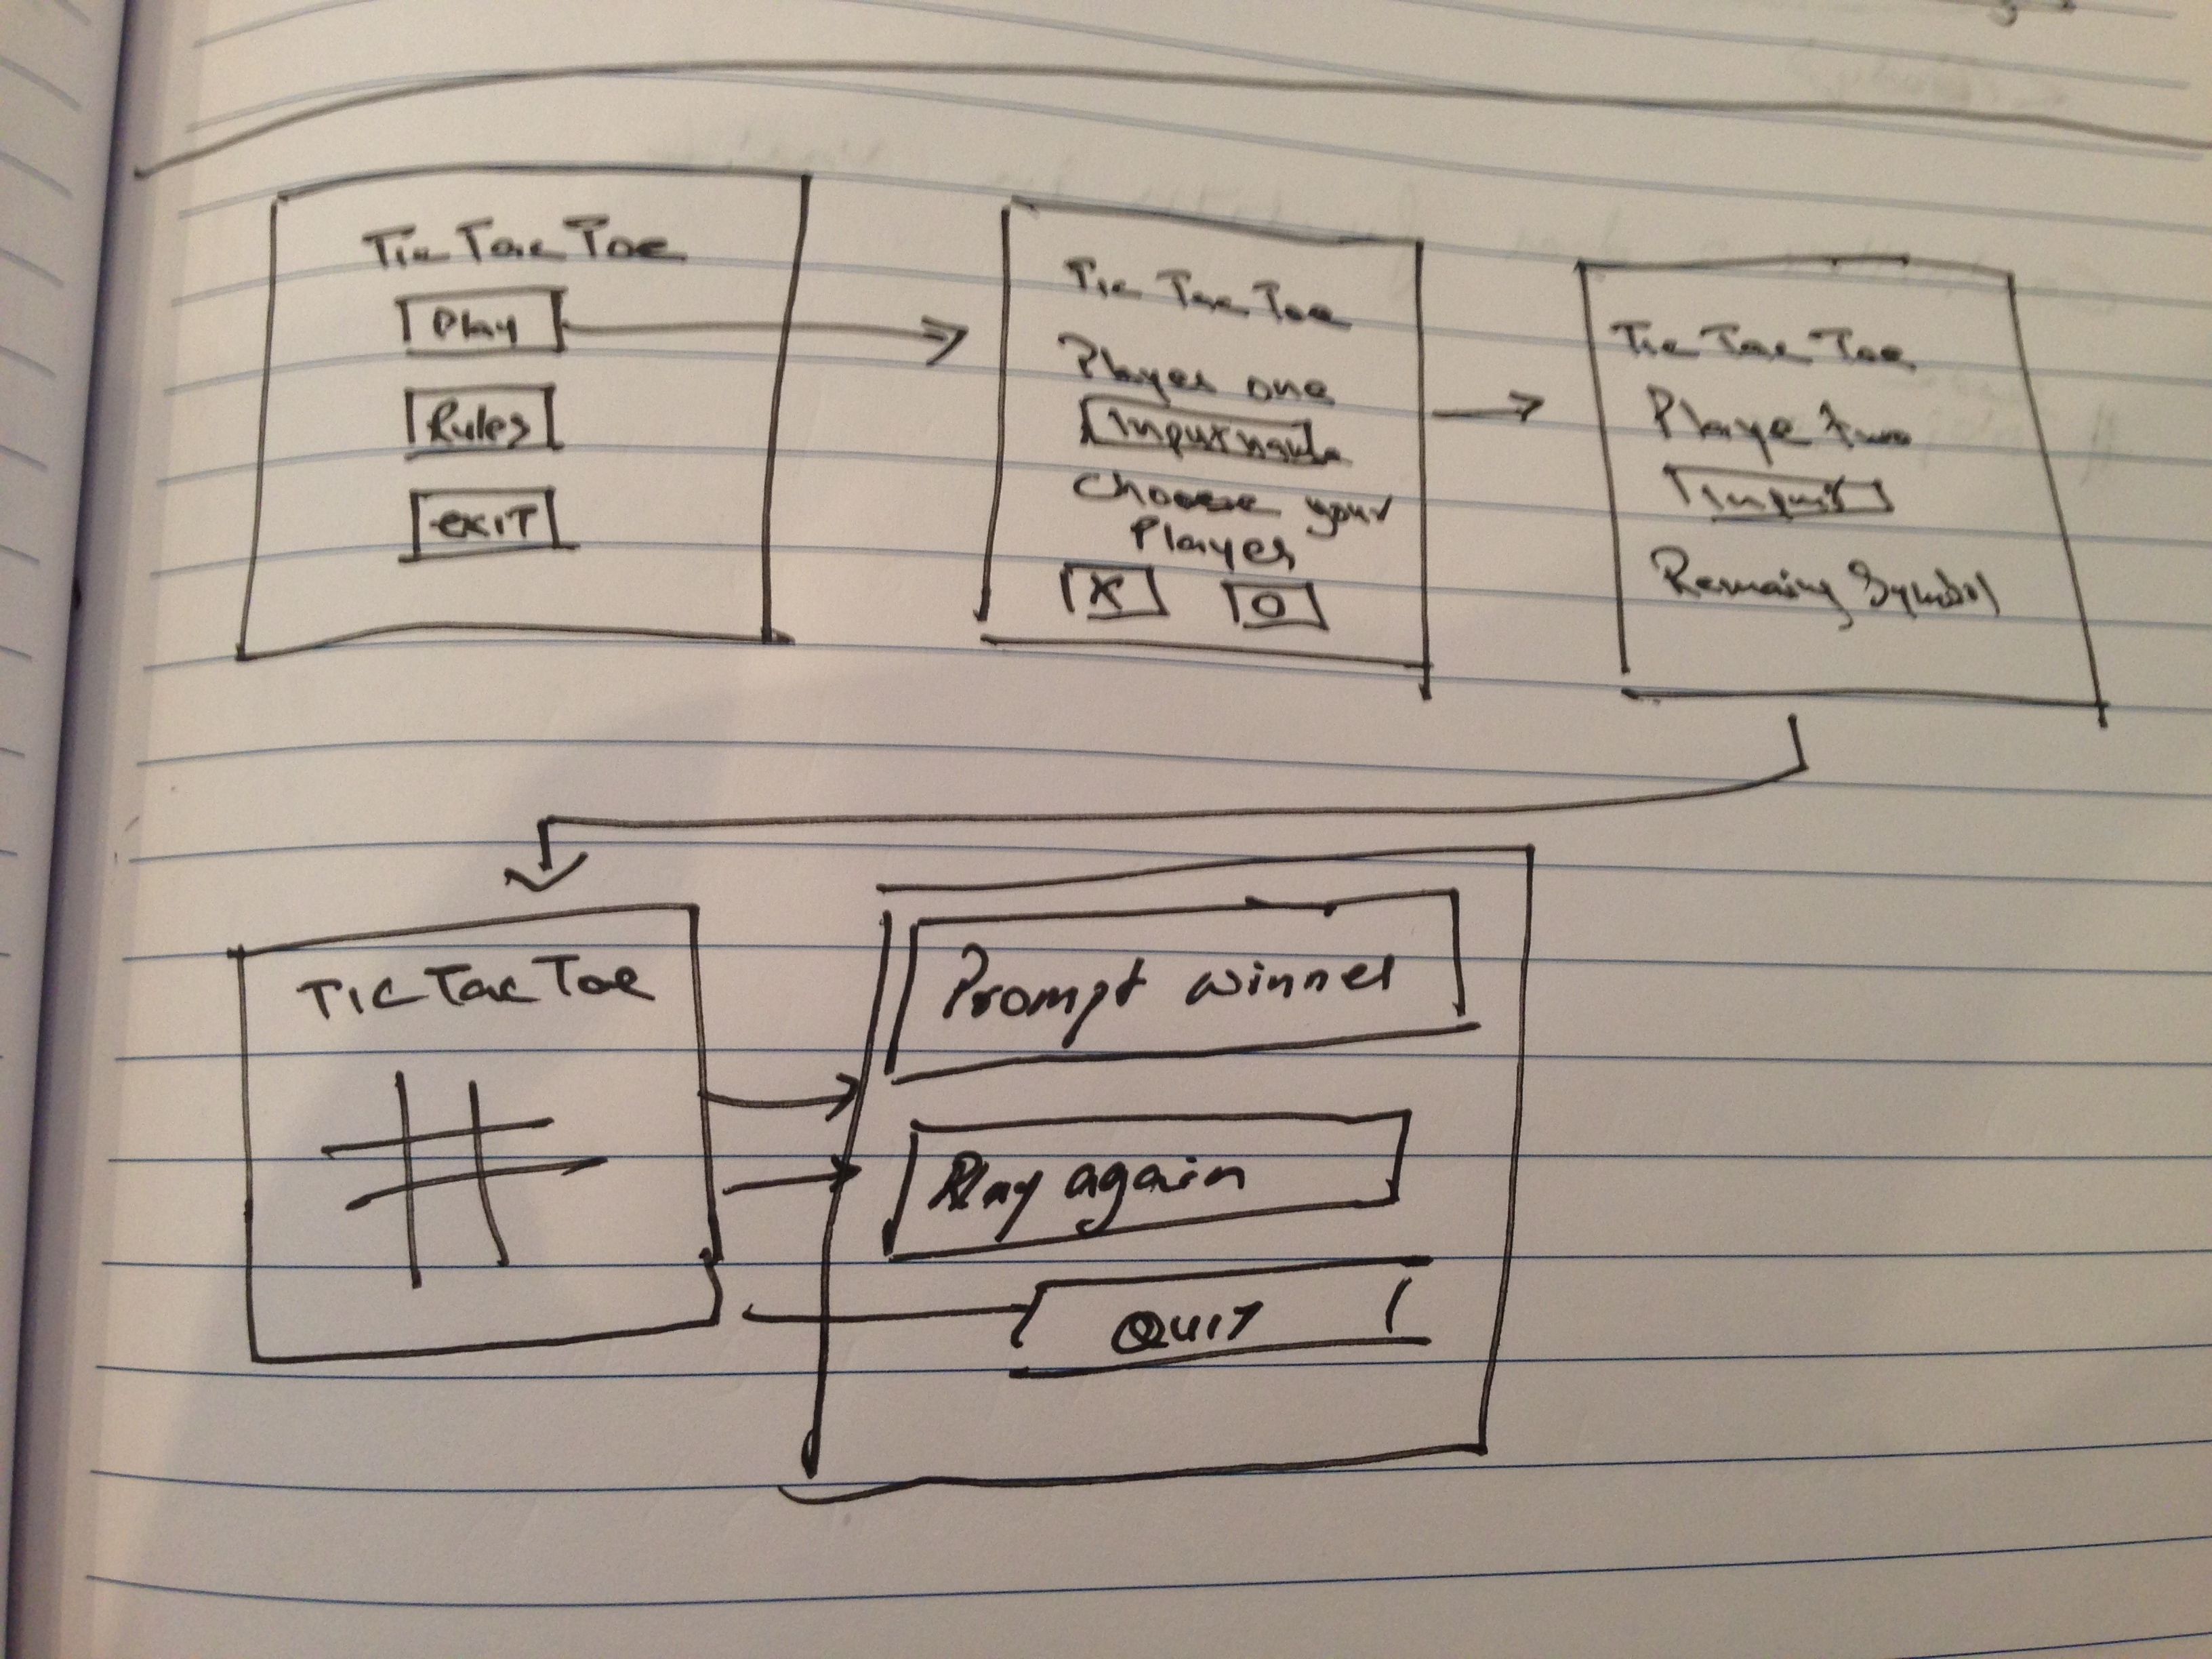 Tic Tac Toe
Play
Rules
exiT
Tic Tac Toe
Player one
Input name
Choose your
Player
X O
Tic Tac Toe
Playe two
Input
Remaing Symbol
Tic Tac Toe
Prompt winner
Play again
QUIT